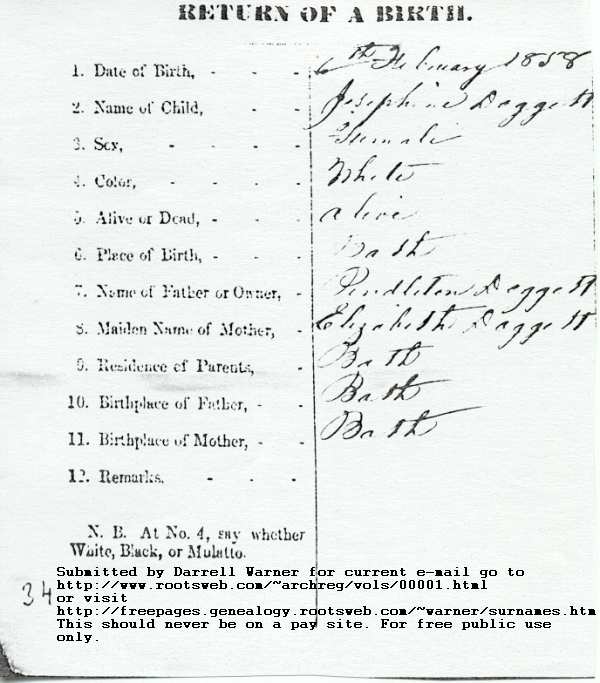 RETURN OF A BIRTH.
1. Date of Birth, - - - 6th February 1858
2. Name of Child, - - - Josephine Daggett
3. Sex, - - - - Female
4. Color, - - - - White
5. Alive or Dead, - - - alive
6. Place of Birth, - - - Bath
7. Name of Father or Owner, - Pendleton Daggett
8. Maiden Name of Mother, - Elizabeth Daggett
9. Residence of Parents, - Bath
10. Birthplace of Father, - - Bath
11. Birthplace of Mother, - - Bath
12. Remarks. - - -
N. B. At No. 4, say whether
White, Black, or Mulatto.
34
Submitted by Darrell Warner for current e-mail go to
http://www.rootsweb.com/~archreg/vols/00001.html
or visit
http://freepages.genealogy.rootsweb.com/~warner/surnames.htm
This should never be on a pay site. For free public use
only.